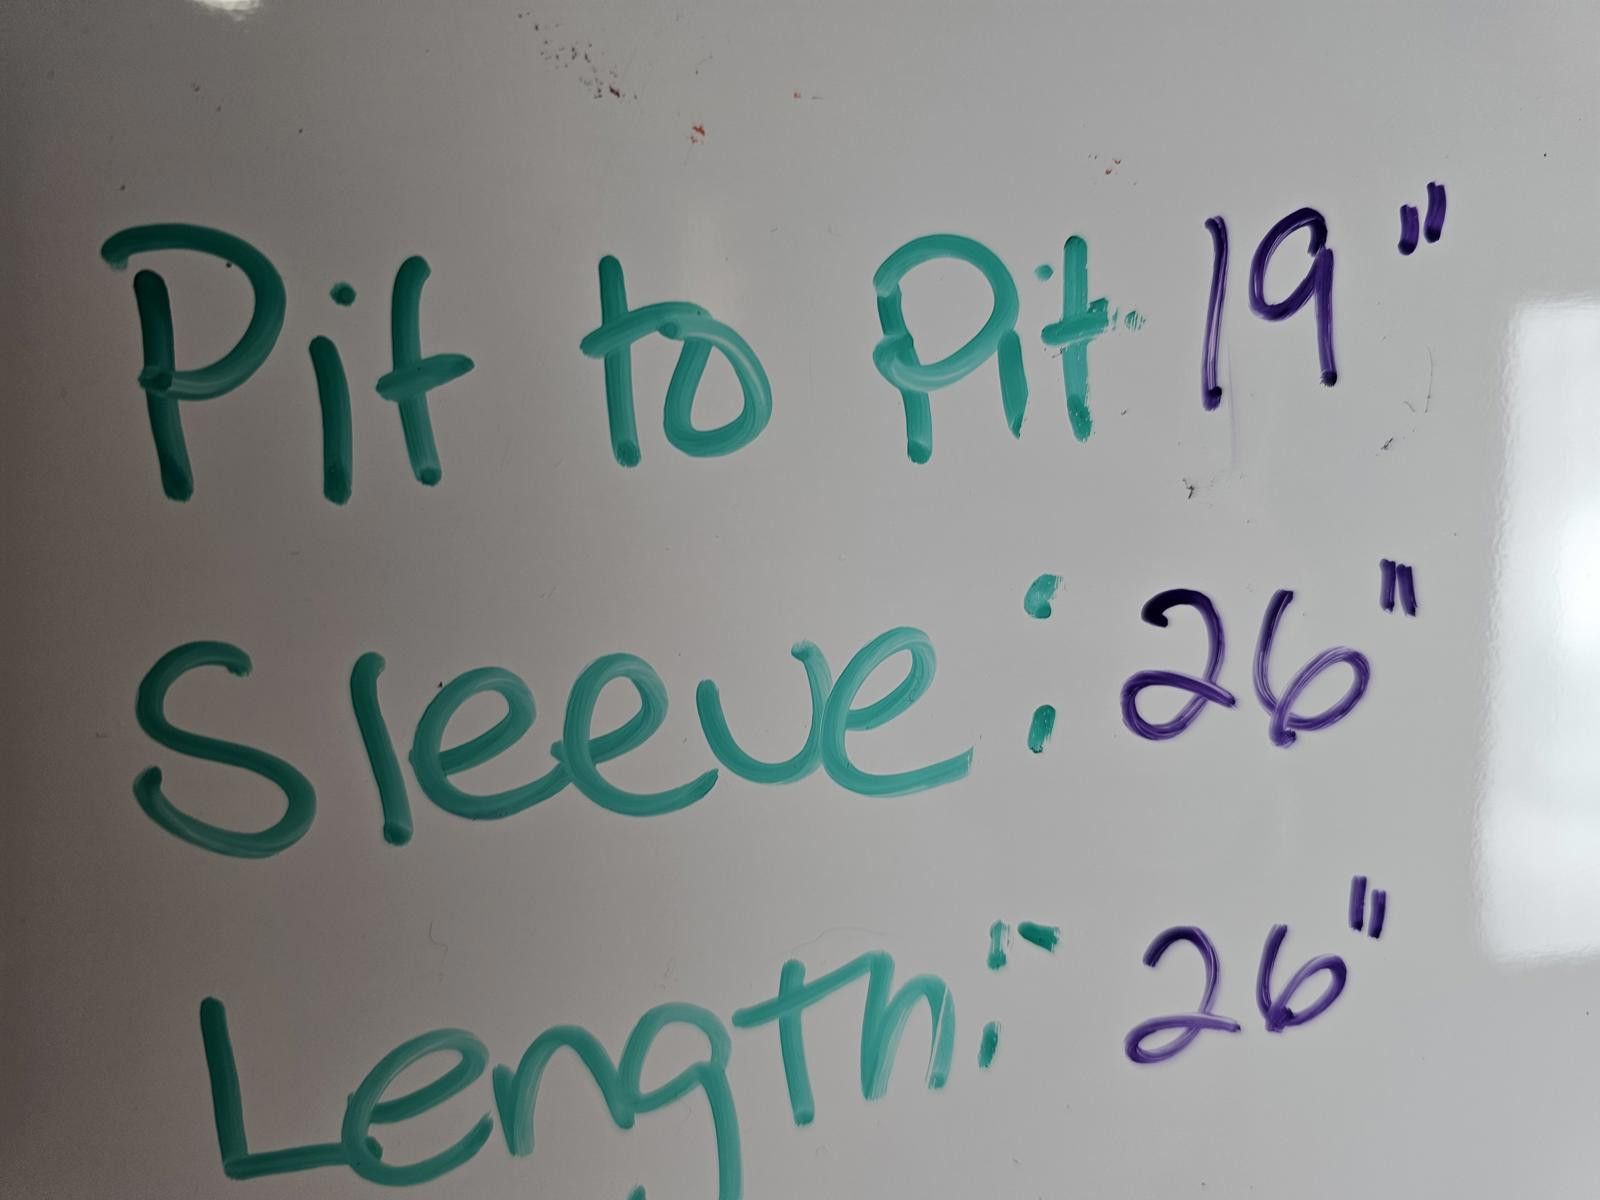 Pit to Pit 19"
Sleeve: 26"
Length: 26"